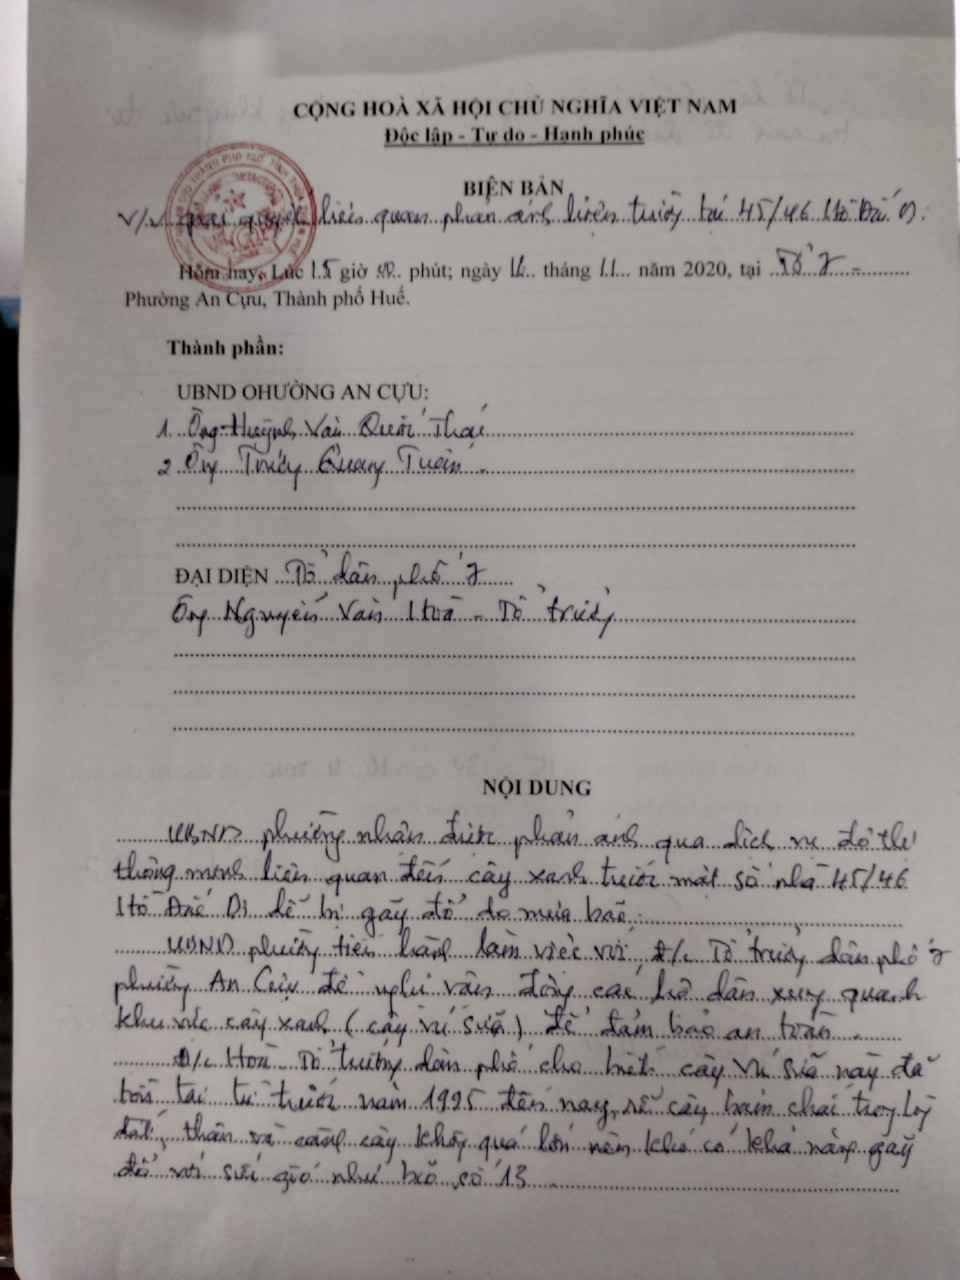 CỘNG HOÀ XÃ HỘI CHỦ NGHĨA VIỆT NAM
Độc lập - Tự do - Hạnh phúc
BIÊN BẢN
V/v giải quyết liên quan phản ánh hiện trường tại 45/46 Hồ Đắc Di
Hôm nay, Lúc 15 giờ 00 phút; ngày 16 tháng 11 năm 2020, tại Tổ 7
Phường An Cựu, Thành phố Huế.
Thành phần:
UBND OHƯỜNG AN CỰU:
1. Ông Huỳnh Văn Quốc Thái
2 Ông Trương Quang Tuấn
ĐẠI DIỆN Tổ dân phố 7
Ông Nguyễn Văn Hoà - Tổ trưởng
NỘI DUNG
UBND phường nhận được phản ánh qua dịch vụ đô thị
thông minh liên quan đến cây xanh trước mặt số nhà 45/46
Hồ Đắc Di dễ bị gãy đổ do mưa bão.
UBND phường tiến hành làm việc với Đ/c Tổ trưởng dân phố 7
phường An Cựu đề nghị vận động các hộ dân xung quanh
khu vực cây xanh (cây vú sữa) để đảm bảo an toàn.
Đ/c Hoà Tổ trưởng dân phố cho biết cây Vú sữa này đã
tồn tại từ trước năm 1995 đến nay, rễ cây bám chặt trong lòng
đất, thân và cành cây không quá lớn nên khó có khả năng gãy
đổ với sức gió như bão số 13